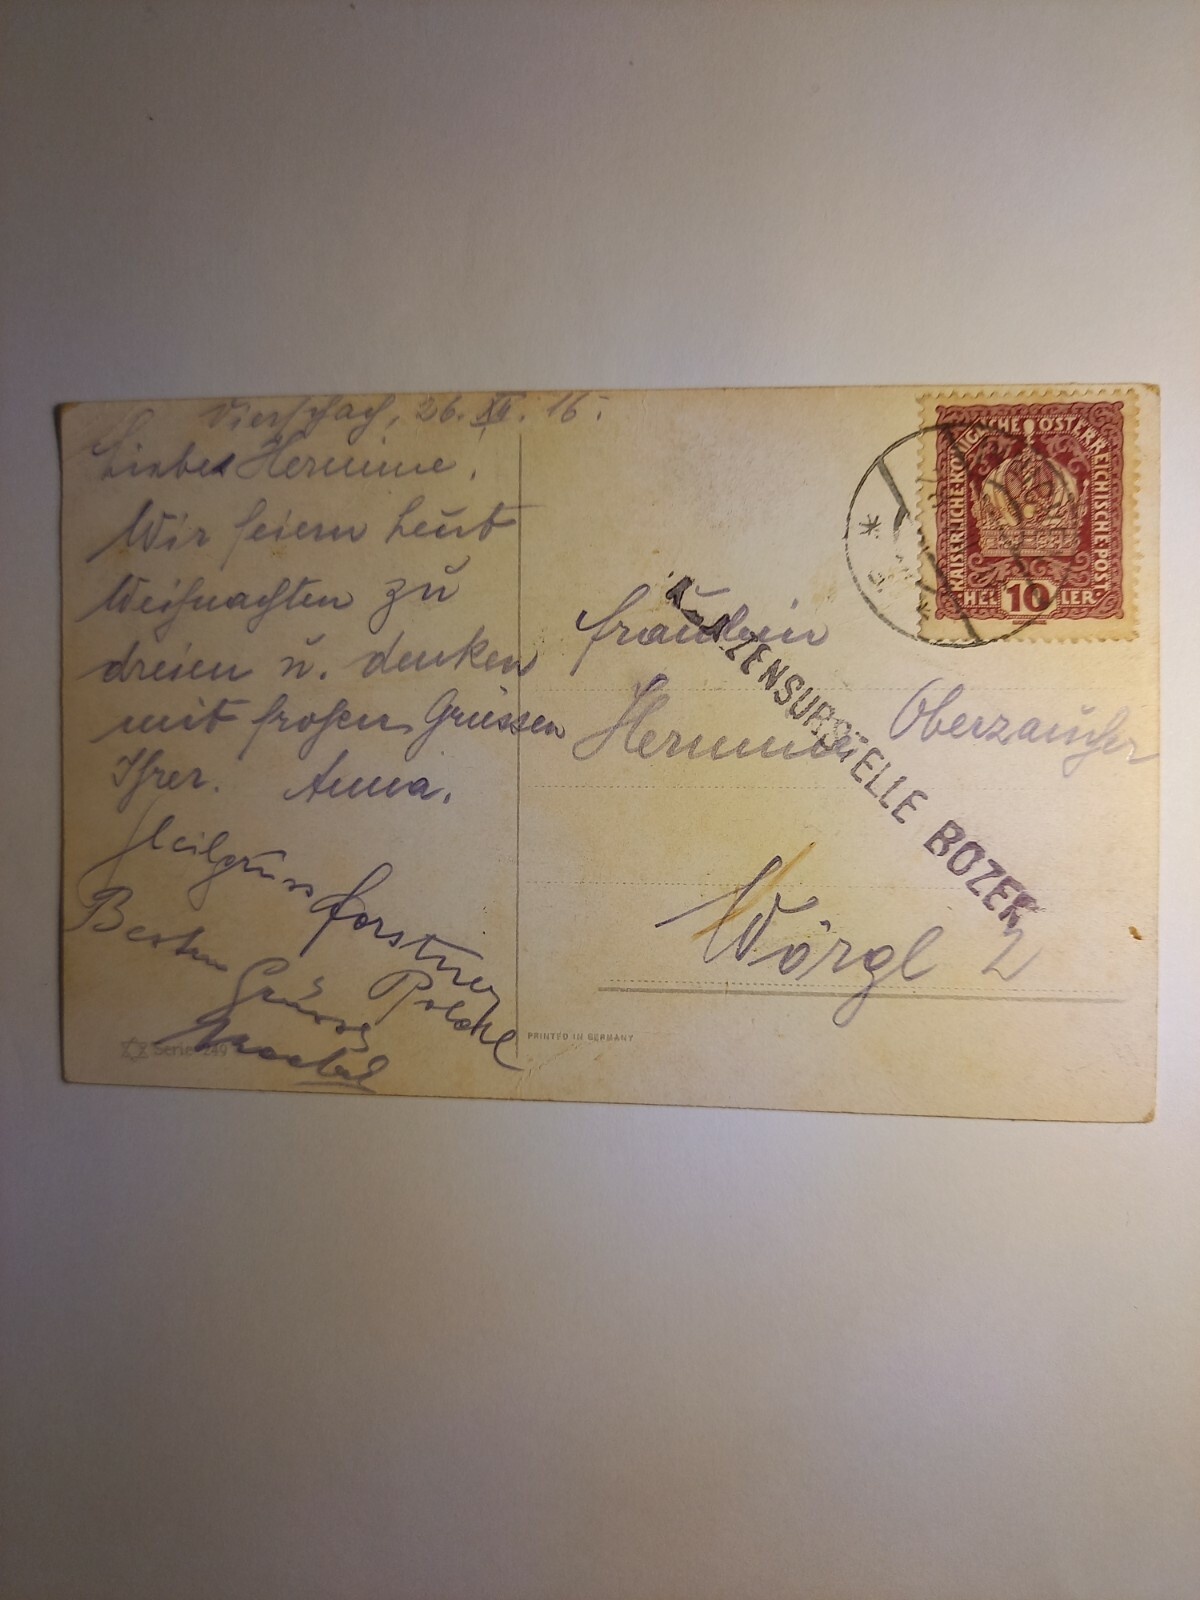 Vierschach, 26. XII. 16.
Liebe Hermine.
Wir feiern heut
Weihnachten zu
dreien u. denken
mit frohen Grüssen
Ihrer. Anna.
Heilgruss Forstner
Besten Grüsse
Serie 249
PRINTED IN GERMANY
KAISERLICHE KÖNIGLICHE ÖSTERREICHISCHE POST
HELLER
10
ZENSURSTELLE BOZEN
Fräulein
Hermine Oberzaucher
Wörgl 2